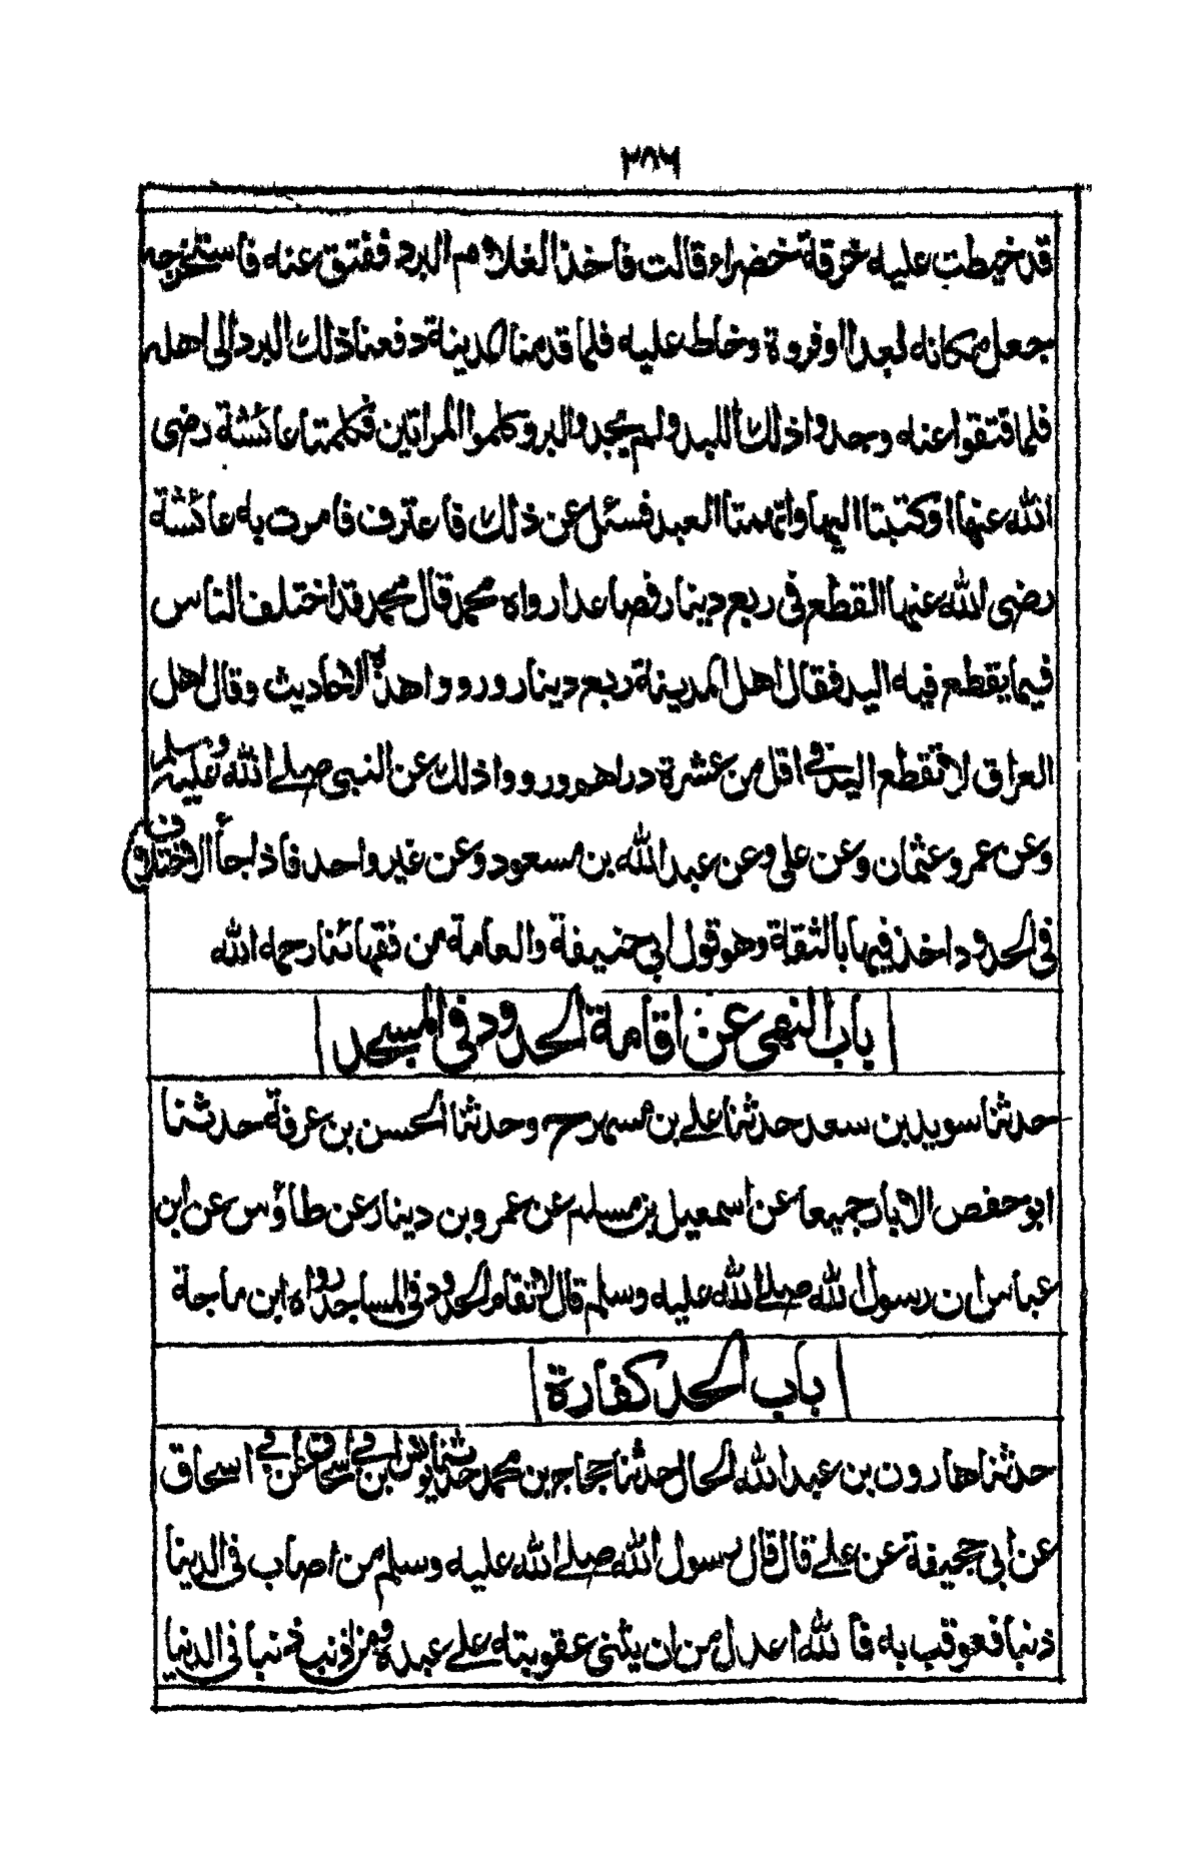 ٣٨٦
قد خيطت عليه خرقة خضراء قالت فاخذ الغلام البرد ففتق عنه فاستخرجه
جعل مكانه لبدا او فروة وخاط عليه فلما قدمنا المدينة دفعنا ذلك البرد الى اهله
فلما فتقوا عنه وجدوا ذلك اللبد ولم يجدوا البرد وكلموا المراتين فكلمتا عائشة رضى
الله عنها او كتبتا اليها واتهمتا العبد فسئل عن ذلك فاعترف فامرت به عائشة
رضى الله عنها القطع فى ربع دينار فصاعدا رواه محمد قال محمد قد اختلف الناس
فيما يقطع فيه اليد فقال اهل المدينة ربع دينار ورووا هذه الاحاديث وقال اهل
العراق لا تقطع اليد فى اقل من عشرة دراهم ورووا ذلك عن النبى صلے الله عليه وسلم
وعن عمر وعثمان وعن على وعن عبد الله بن مسعود وعن غير واحد فاذا جاء الاختلاف
فى الحدود اخذ فيها بالثقة وهو قول ابى حنيفة والعامة من فقهائنا رحمه الله
باب النهى عن اقامة الحدود فى المسجد
حدثنا سويد بن سعد حدثنا علے بن مسهر ح وحدثنا الحسن بن عرفة حدثنا
ابو حفص الابار جميعا عن اسمعيل بن مسلم عن عمرو بن دينار عن طاؤس عن ابن
عباس ان رسول الله صلے الله عليه وسلم قال لا تقام الحدود فى المساجد رواه ابن ماجة
باب الحد كفارة
حدثنا هارون بن عبد الله الحمال حدثنا حجاج بن محمد حدثنا يونس بن ابى اسحاق عن ابى اسحاق
عن ابى جحيفة عن علے قال قال رسول الله صلے الله عليه وسلم من اصاب فى الدنيا
ذنبا فعوقب به فا لله اعدل من ان يثنى عقوبته علے عبده ومن اذنب ذنبا فى الدنيا